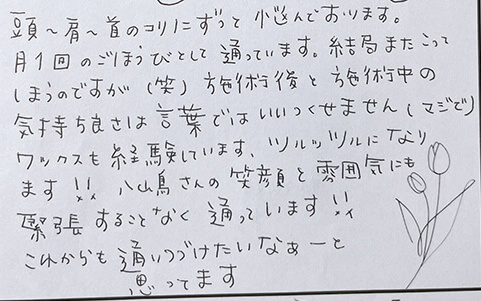 頭～肩～首のコリにずっと悩んでおります。
月1回のごほうびとして通っています。結局またこって
しまうのですが(笑)施術後と施術中の
気持ち良さは言葉ではいいつくせません(マジで)
ワックスも経験しています、ツルッツルになり
ます!! 八山鳥さんの笑顔と雰囲気にも
緊張することなく通っています!!
これからも通いつづけたいなぁーと
思ってます